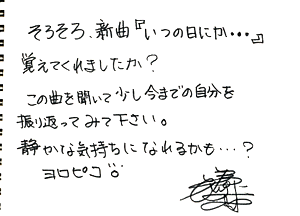 そろそろ、新曲『いつの日にか・・・』
覚えてくれましたか？
この曲を聞いて少し今までの自分を
振り返ってみて下さい。
静かな気持ちになれるかも・・・？
ヨロピコ